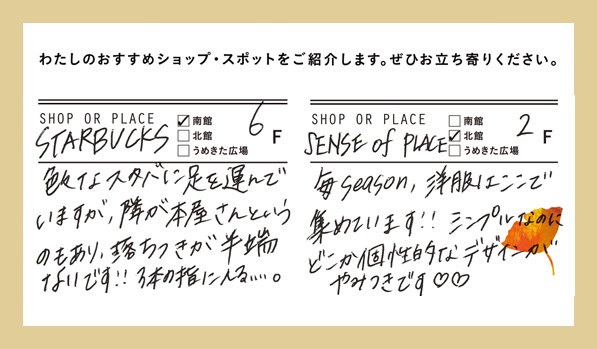 わたしのおすすめショップ・スポットをご紹介します。ぜひお立ち寄りください。
SHOP OR PLACE
STARBUCKS
南館
北館
うめきた広場
6 F
色々なスタバに足を運んで
いますが、隣が本屋さんという
のもあり、落ちつきが半端
ないです!! 3本の指に入る....。
SHOP OR PLACE
SENSE of PLACE
南館
北館
うめきた広場
2 F
毎season, 洋服はここで
集めています!! シンプルなのに
どこか個性的なデザインが
やみつきです♡♡